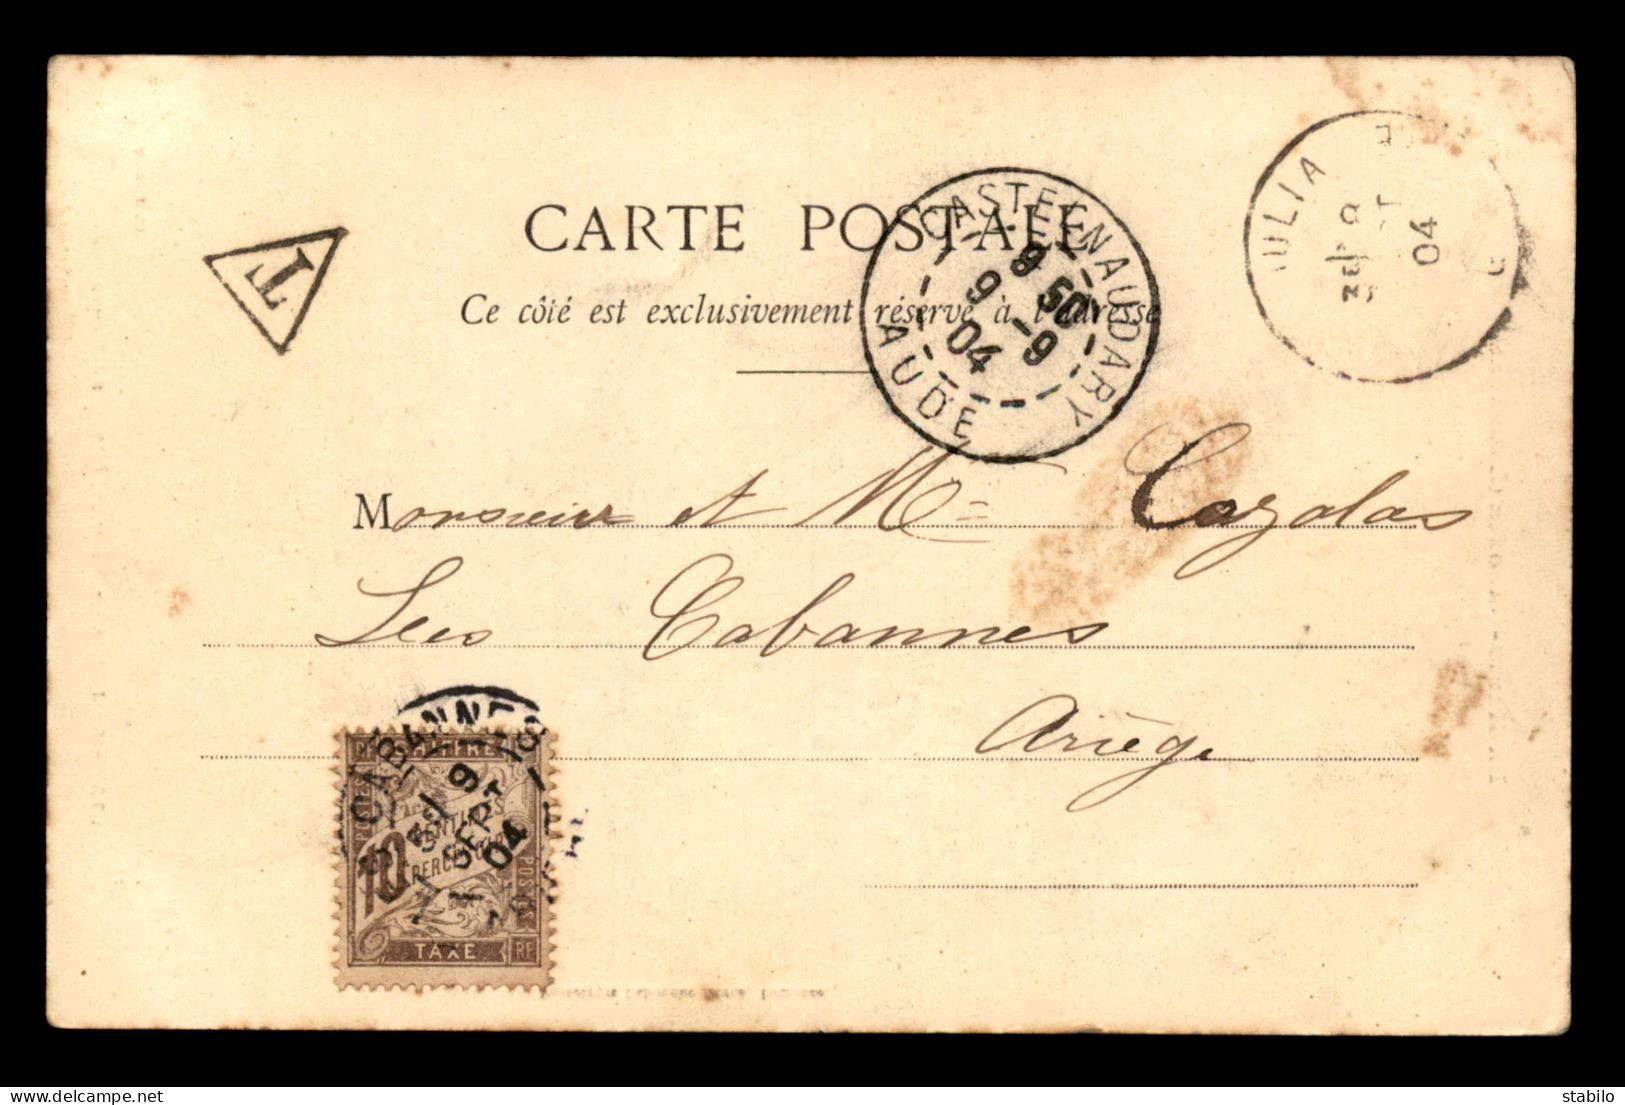 CARTE POSTALE
Ce côté est exclusivement réservé à l'adresse
T
CASTELNAUDARY
9 50
9 - 9
04
AUDE
JULIA
04
Monsieur et Mme Cazalas
Les Cabannes
Ariège
CABANNES
9
SEPT
04
10
CENTIMES
À PERCEVOIR
POSTES
TAXE
RF
stabilo
delcampe.net